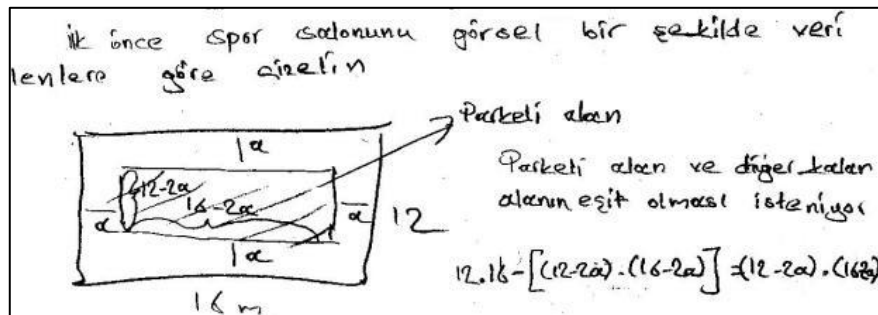 ilk önce spor salonunu görsel bir şekilde veri
lenlere göre çizelim
Parketi alan
a
12-2a
16-2a
a
a
12
a
16 m
Parketi alan ve diğer kalan
alanın eşit olması isteniyor
12.16-[(12-2a).(16-2a)]=(12-2a).(162a)